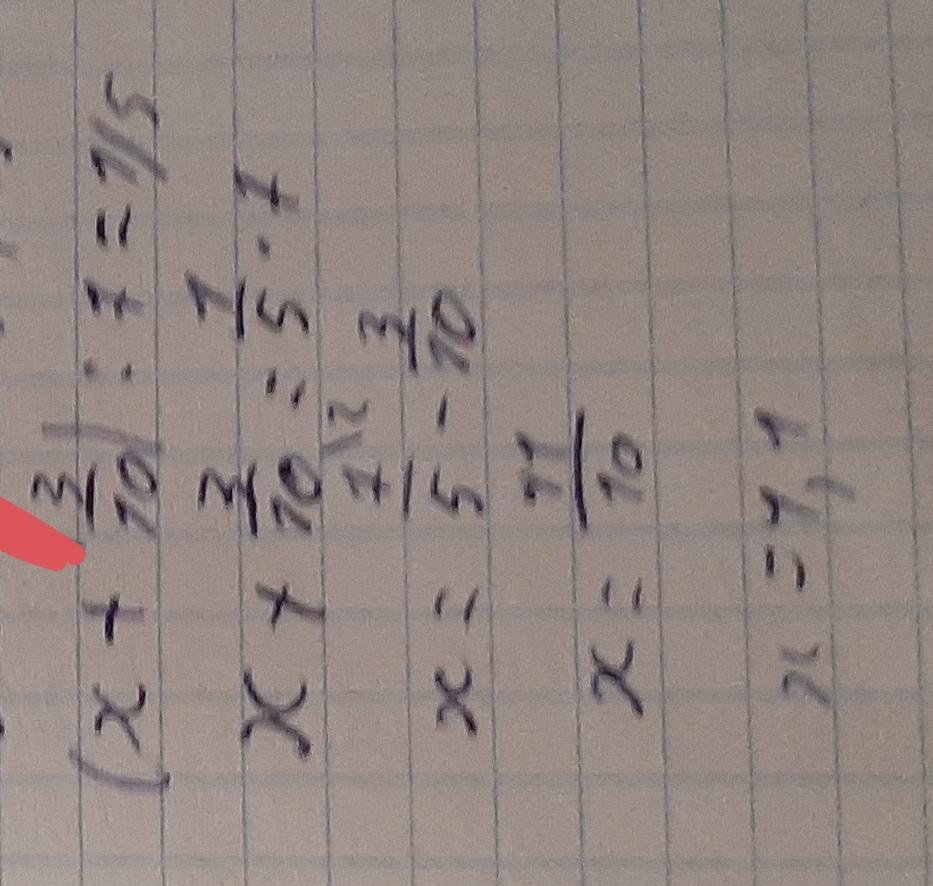 (x + 3/10) : 7 = 1/5
x + 3/10 = 1/5 · 7
x = 7/5 \2 - 3/10
x = 11/10
x = 1,1